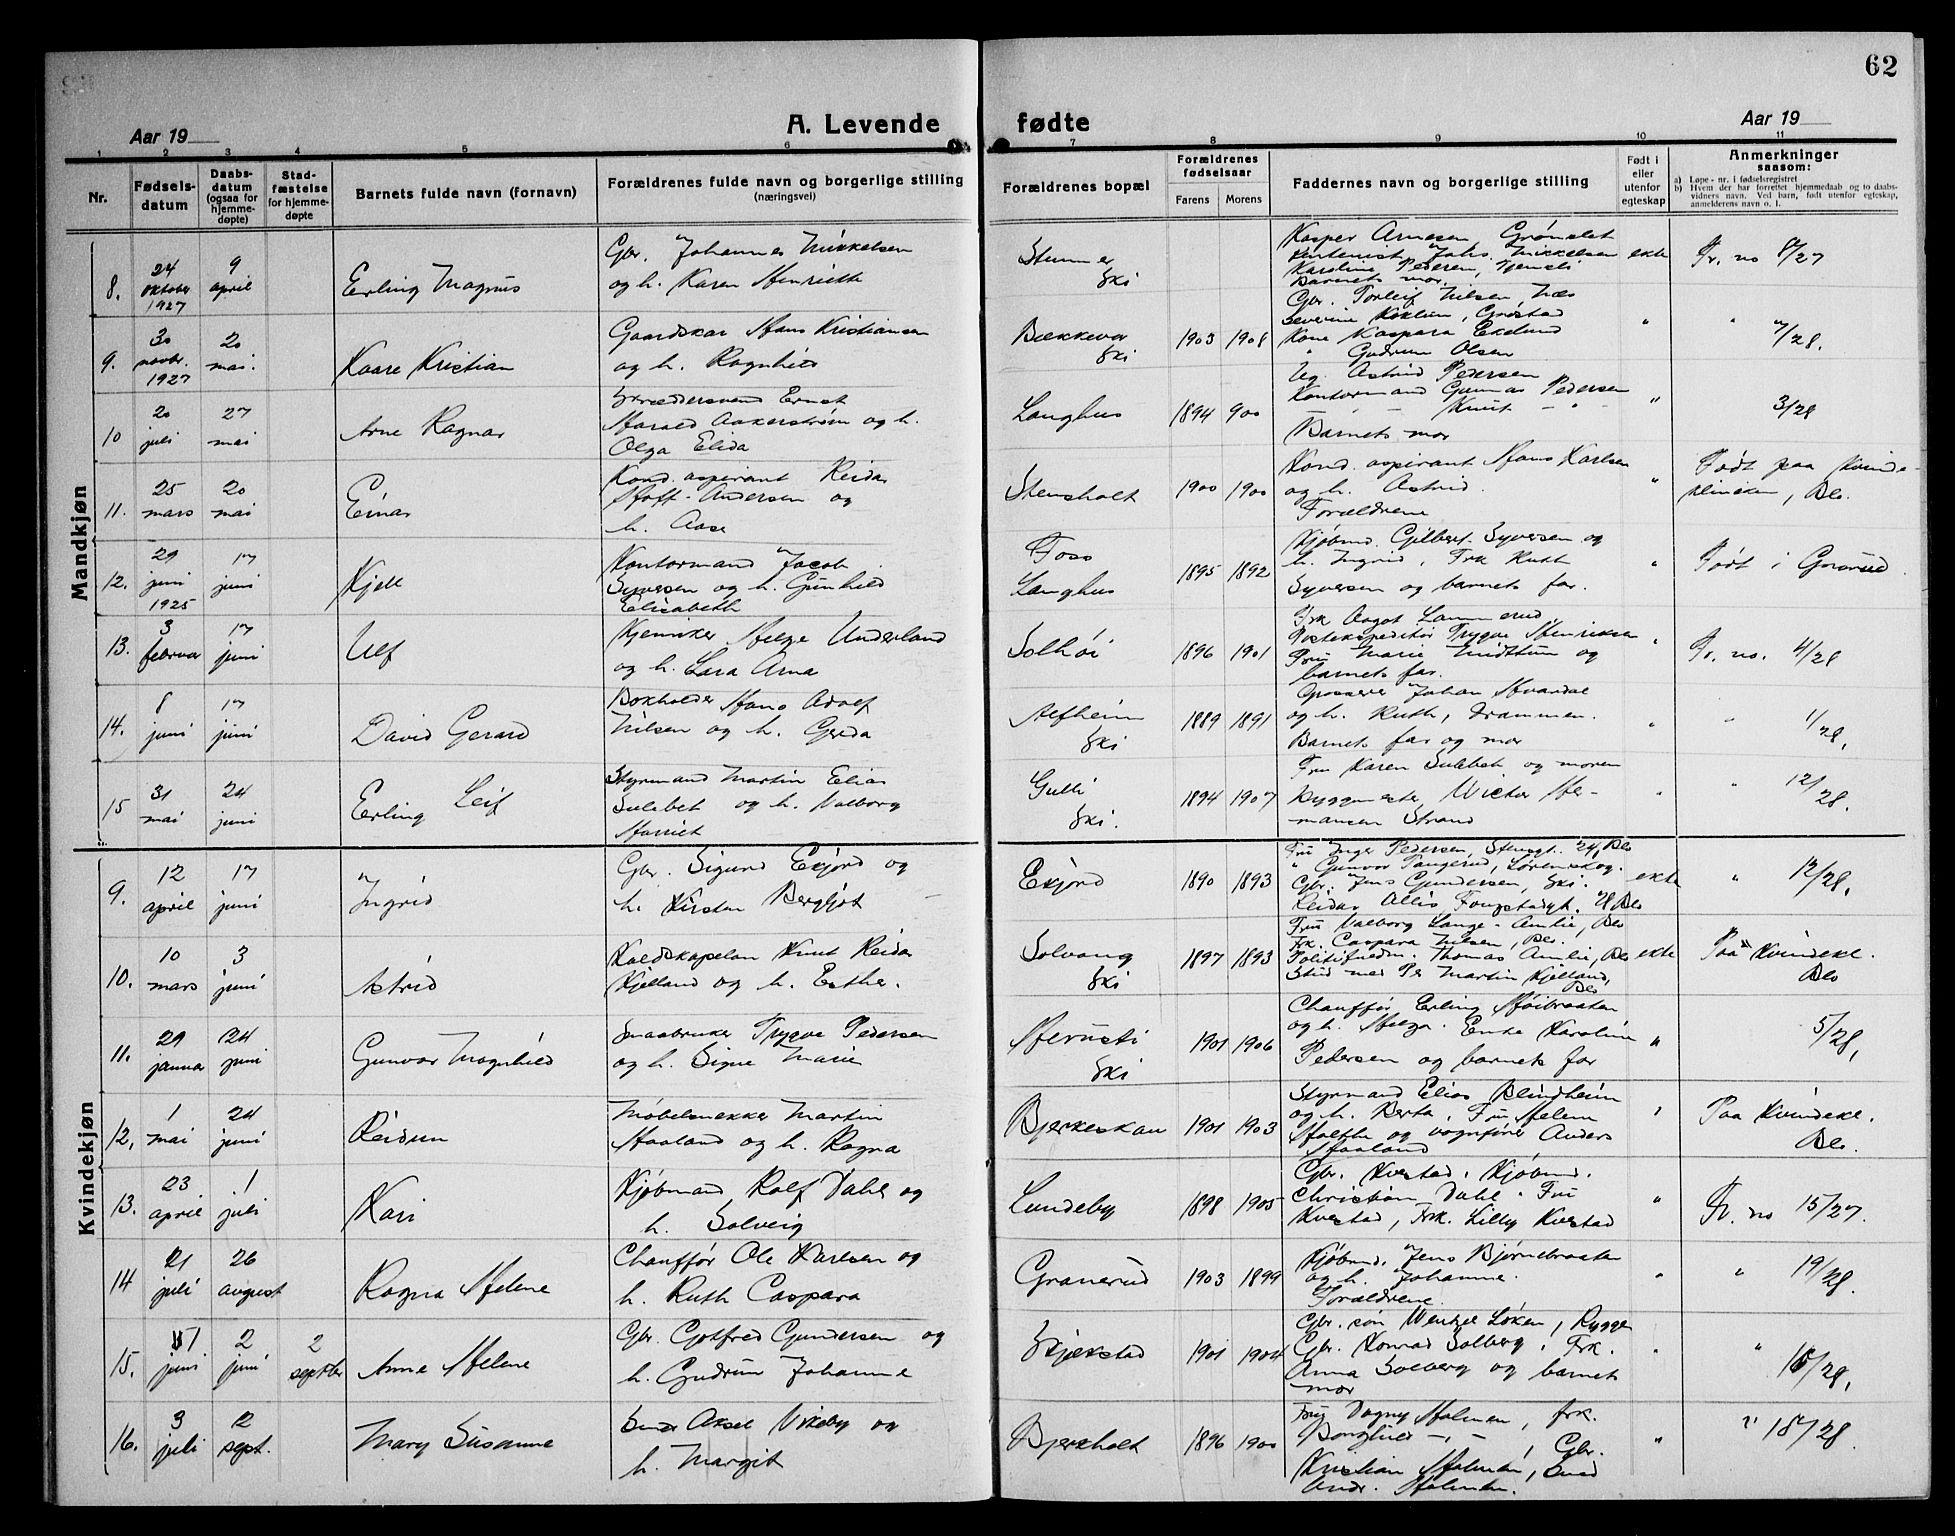 62
Aar 19
A. Levende
fødte
Aar 19
1 2 3 4 5 6 7 8 9 10 11
Nr.
Fødsels-
datum
Daabs-
datum
(ogsaa for
hjemme-
døpte)
Stad-
fæstelse
for hjemme-
døpte
Barnets fulde navn (fornavn)
Forældrenes fulde navn og borgerlige stilling
(næringsvei)
Forældrenes bopæl
Forældrenes
fødselsaar
Farens Morens
Faddernes navn og borgerlige stilling
Født i
eller
utenfor
egteskap
Anmerkninger
saasom:
a) Løpe-nr. i fødselsregistret
b) Hvem der har forrettet hjemmedaab og to daabs-
vidners navn. Ved barn, født utenfor egteskap,
anmelderens navn o. l.
Mandkjøn
8.
24
oktober
1927
9
april
Erling Magnus
Gbr. Johannes Mikkelsen
og h. Karen Henriette
Stunner
Ski
Kasper Arnesen
Johs. Mikkelsen
Karoline Pedersen,
Barnets mor
ekte
Fr. no 8/27
9.
30
novbr.
1927
20
mai.
Kaare Kristian
Gaardskar Hans Kristiansen
og h. Ragnhild
Bækkevar
Ski
1903 1908
Gbr. Torleif Nilsen, Næs
Severine
Kone Kaspara Ekelund
" Gudrun Olsen
Ug. Astrid Pedersen
"
" 7/28.
10
20
juli
27
mai
Arne Ragnar
Skræddersvend Ernst
Harald Aakerstrøm og h.
Olga Elida
Langhus
1894 900
Kontormand Gunnar Pedersen
— " — Knut — " —
Barnets mor
"
3/28
11.
25
mars
20
mai
Einar
Kond. aspirant Reidar
Hoff-Andersen og
h. Aase
Stensholt
1900 1900
Kond. aspirant Hans Karlsen
og h. Astrid.
Forældrene
"
Født paa Kvinde-
kliniken, Oslo.
12.
29
juni
1925
17
juni
Kjell
Kontormand Jacob
Syversen og h. Gunhild
Elisabeth
Foss
Langhus
1895 1892
Kjøbmd. Gilbert Syversen og
h. Ingrid, Frk Ruth
Syversen og barnets far.
"
Født i Grorud
13.
3
februar
17
juni
Ulf
Kjemiker Helge Underland
og h. Lara Arna
Solhøi
1896 1901
Frk Aagot Lammerud
Postekspeditør Trygve Henriksen
Fru Marie Midttun og
barnets far.
"
Fr. no. 4/28
14.
8
juni
17
juni
David Gerard
Bokholder Hans Adolf
Nilsen og h. Gerda
Alfheim
Ski
1889 1891
Grosserer Johan Hvardal
og h. Ruth, Drammen.
Barnets far og mor
"
" 1/28,
15
31
mai
24
juni
Erling Leif
Styrmand Martin Elias
Sulebak og h. Valborg
Harriet
Gulli
Ski.
1894 1907
Fru Karen Sulebak og moren
Byggmester Victor Her-
mansen Strand
"
" 12/28.
Kvindekjøn
9.
12
april
17
juni
Ingrid
Gbr. Sigurd Ekjord og
h. Kirsten Bergljot
Ekjord
1890 1893
Fru Inger Pedersen, Stensgt. 24, Oslo
" Gunvor Tangerud, Lørenskog.
Gbr. Jens Gundersen, Ski.
Reidar
ekte
" 12/28,
10.
10
mars
3
juni
Astrid
Kaldskapelan Knut Reidar
Kjelland og h. Esther.
Solvang
Ski
1897 1893
Fru Valborg Lange-Amlie, Oslo
Frk. Caspara Nilsen, Oslo.
Politifuldm. Thomas Amlie, Oslo
Stud med Per Martin Kjelland,
Oslo
ekte
Paa Kvindekl.
Oslo
11.
29
januar
24
juni
Gunvor Magnhild
Smaabruker Trygve Pedersen
og h. Signe Marie
Herusti
Ski
1901 1906
Chauffør Erling Høibraaten
og h. Helga. Enke Karoline
Pedersen og barnets far
"
5/28,
12.
1
mai
24
juni
Reidun
Møbelsnekker Martin
Haaland og h. Ragna
Bjerkeskau
1901 1903
Styrmand Elias Blindheim
og h. Berta, Fru Helene
Holthe og vognfører Anders
Haaland
"
Paa Kvindekl.
Oslo.
13.
23
april
1
juli
Kari
Kjøbmand Rolf Dahl og
h. Solveig
Lundeby
1898 1905
Gbr. Kvestad. Kjøbmd.
Christian Dahl. Fru
Kvestad, Frk. Lilly Kvestad
"
Fr. no 15/27.
14
21
juli
26
august
Ragna Helene
Chauffør Ole Karlsen og
h. Ruth Caspara
Granerud
1903 1899
Kjøbmd. Jens Bjørnebraaten
og h. Johanne.
Forældrene.
"
" 19/28.
15.
juni
2
juni
2
septber
Anne Helene
Gbr. Gotfred Gundersen og
h. Gudrun Johanne
Skjekstad
1901 1904
Gbr. søn Wentzel Løken, Rygge
Gbr. Konrad Solberg, Frk.
Anna Solberg og barnets
mor
"
" 16/28,
16.
3
juli
12
sept.
Mary Susanne
Smed Aksel Vikeby og
h. Margit
Bjerkholt
1896 1900
Fru Dagny Holmen, frk.
Borghild — " —, Gbr.
Kristian Holmen, Smed
Andr. Holmen.
"
" 18/28.